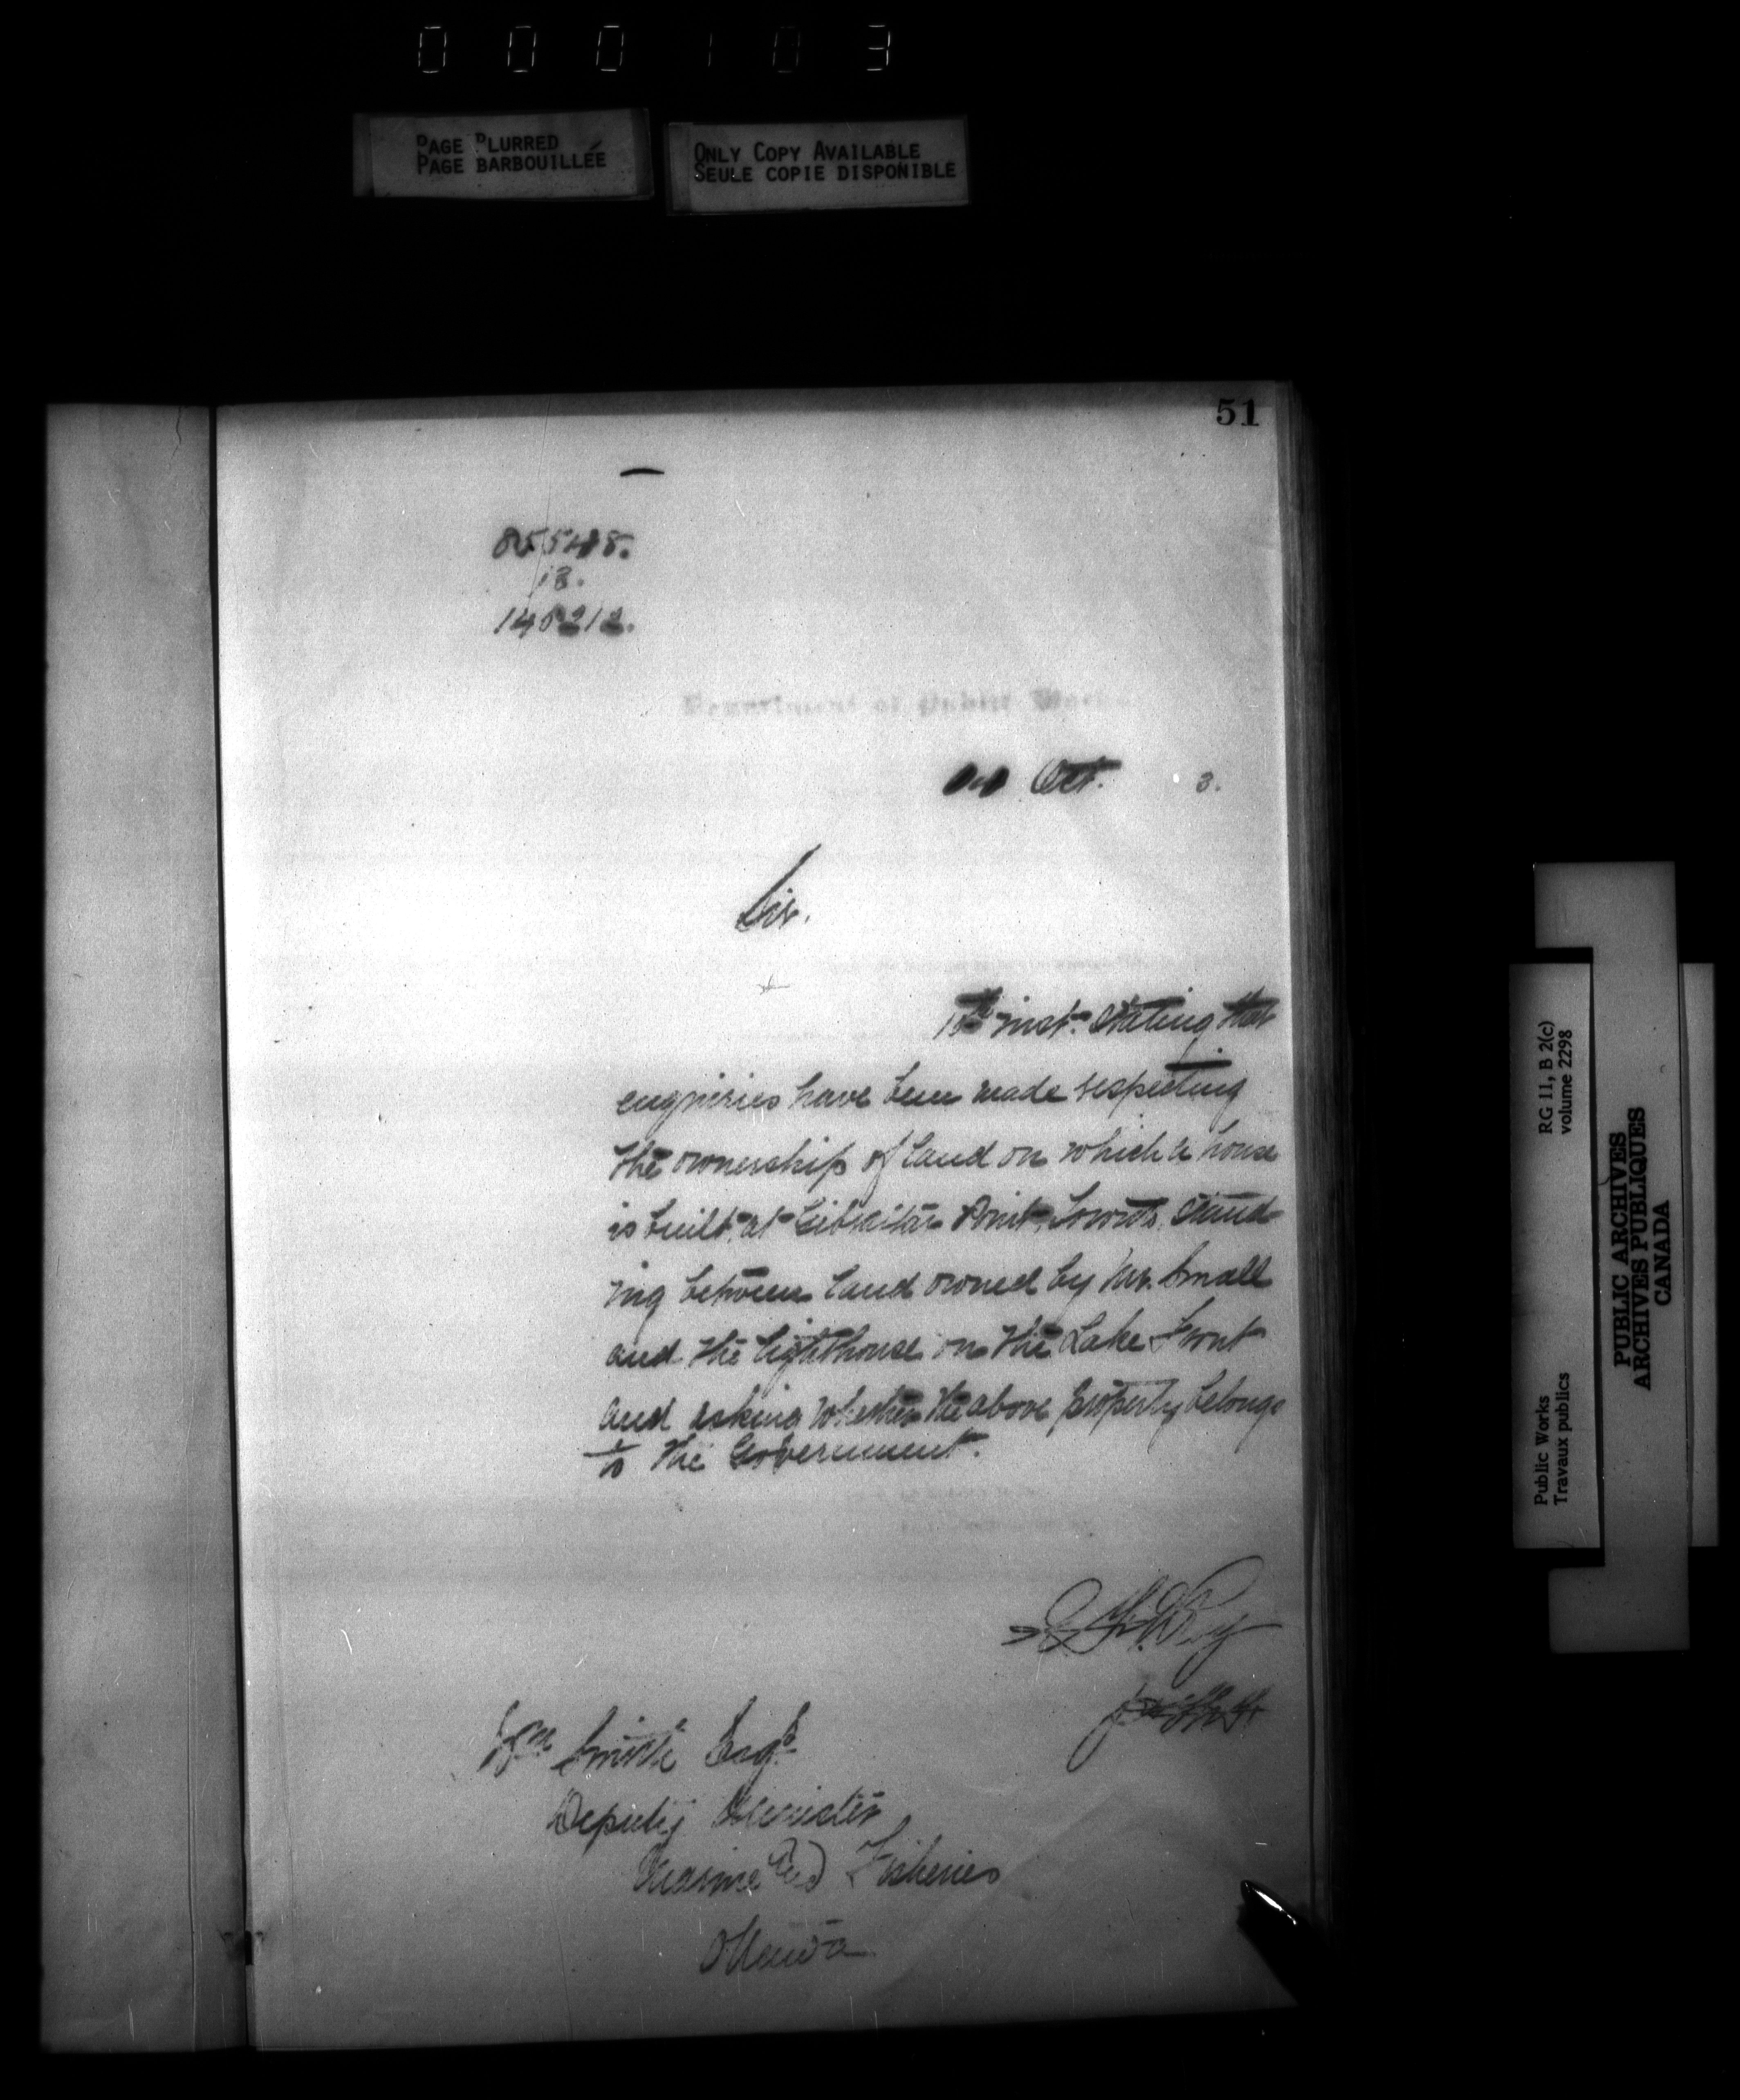 000103
PAGE BLURRED
PAGE BARBOUILLÉE
ONLY COPY AVAILABLE
SEULE COPIE DISPONIBLE
51
13.
Department of Public Works
Oct. 3.
Sir.
inst. stating that
enquiries have been made respecting
the ownership of land on which a house
is built, at Gibraltar Point, Toronto, stand-
ing between land owned by Mr. Small
and the lighthouse on the Lake Front
and asking whether the above property belongs
to the Government.
Wm Smith Esqr.
Deputy Minister
Marine and Fisheries
Ottawa
RG 11, B 2(c)
volume 2298
Public Works
Travaux publics
PUBLIC ARCHIVES
ARCHIVES PUBLIQUES
CANADA